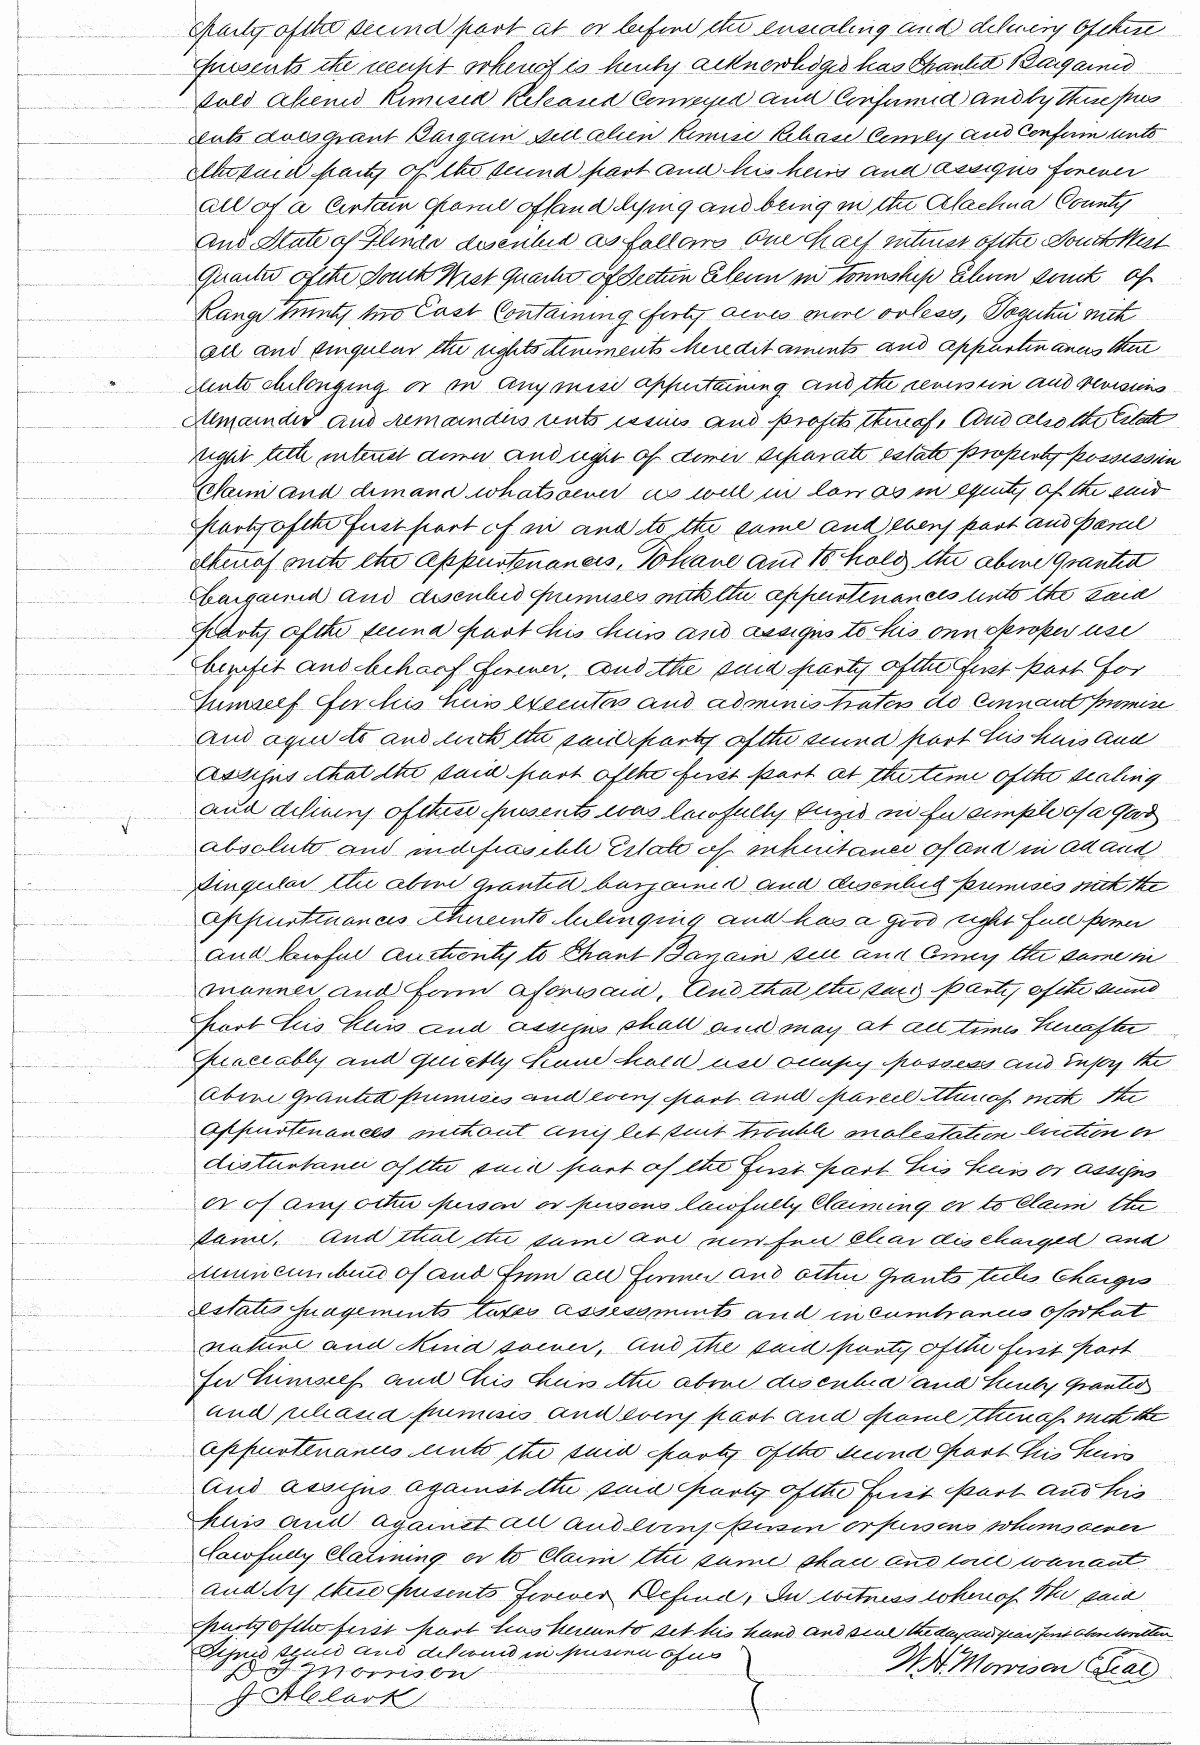 party of the second part at or before the ensealing and delivery of these
presents the receipt whereof is hereby acknowledged has Granted Bargained
sold aliened Remised Released Conveyed and Confirmed and by these pres
ents does grant Bargain sell alien Remise Release Convey and Confirm unto
the said party of the second part and his heirs and assigns forever
all of a certain parcel of land lying and being in the Alachua County
and State of Florida described as follows One half interest of the South West
Quarter of the South West Quarter of Section Eleven in Township Eleven south of
Range twenty two East Containing forty acres more or less, Together with
all and singular the rights tenements hereditaments and appurtinances there
unto belonging or in any wise appertaining and the reversion and revisions
Remainder and remainders rents issues and profits thereof, And also the Estate
right title interest dower and right of dower separate estate property possession
Claim and demand whatsoever as well in law as in equity of the said
party of the first part of in and to the same and every part and parcel
thereof with the appurtenances, To have and to hold the above granted
bargained and described premises with the appurtenances unto the said
party of the second part his heirs and assigns to his own proper use
benefit and behoof forever, and the said party of the first part for
himself for his heirs executors and administrators do Covenant promise
and agree to and with the said party of the second part his heirs and
assigns that the said part of the first part at the time of the sealing
and delivery of these presents was lawfully seized in fee simple of a good
absolute and indefeasible Estate of inheritance of and in all and
singular the above granted bargained and described premises with the
appurtenances thereunto belonging and has a good right full power
and lawful authority to Grant Bargain sell and Convey the same in
manner and form aforesaid, And that the said party of the second
part his heirs and assigns shall and may at all times hereafter
peaceably and quietly have hold use occupy possess and enjoy the
above granted premises and every part and parcel thereof with the
appurtenances without any let suit trouble molestation eviction or
disturbance of the said part of the first part his heirs or assigns
or of any other person or persons lawfully Claiming or to Claim the
same, And that the same are now free clear discharged and
unincumbered of and from all former and other grants titles charges
estates judgements taxes assessments and incumbrances of what
nature and kind soever, And the said party of the first part
for himself and his heirs the above described and hereby granted
and released premises and every part and parcel thereof with the
appurtenances unto the said party of the second part his heirs
and assigns against the said party of the first part and his
heirs and against all and every person or persons whomsoever
lawfully Claiming or to Claim the same shall and will warrant
and by these presents forever Defend, In witness whereof the said
party of the first part has hereunto set his hand and seal the day and year first above written
Signed sealed and delivered in presence of us
D J Morrison W. H. Morrison Seal
J A Clark